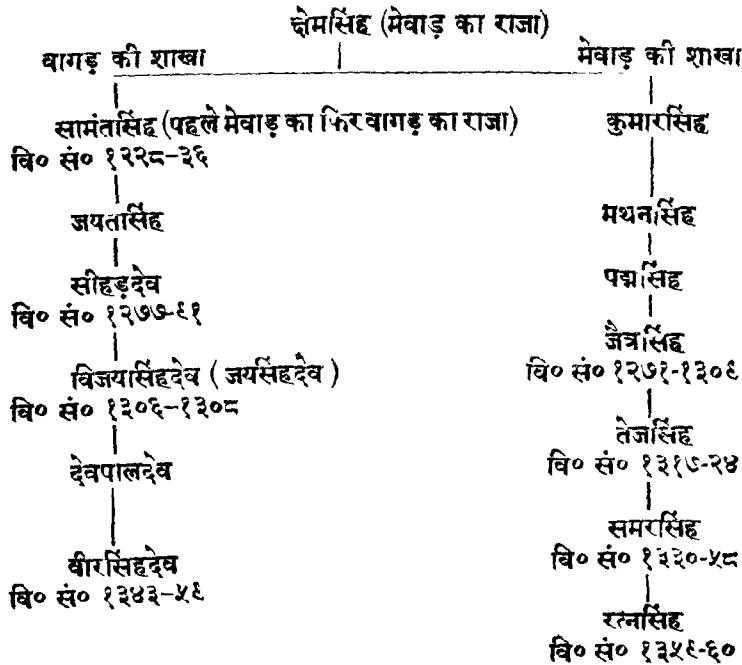 क्षेमसिंह (मेवाड़ का राजा)
वागड़ की शाखा
सामंतसिंह (पहले मेवाड़ का फिर वागड़ का राजा)
वि० सं० १२२८-३६
जयतसिंह
सीहड़देव
वि० सं० १२७७-९१
विजयसिंहदेव (जयसिंहदेव)
वि० सं० १३०६-१३०८
देवपालदेव
वीरसिंहदेव
वि० सं० १३४३-५९
मेवाड़ की शाखा
कुमारसिंह
मथनसिंह
पद्मसिंह
जैत्रसिंह
वि० सं० १२७१-१३०९
तेजसिंह
वि० सं० १३१७-२४
समरसिंह
वि० सं० १३३०-५८
रत्नसिंह
वि० सं० १३५९-६०